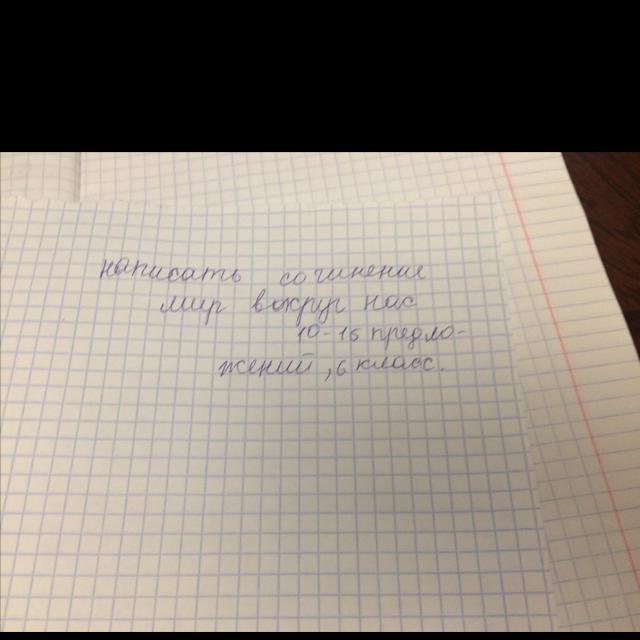 написать сочинение
мир вокруг нас
10-15 предло-
жений, 6 класс.